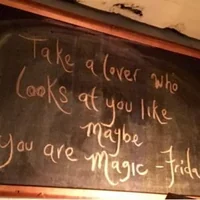 Take a lover who
looks at you like
maybe
you are magic - Frida